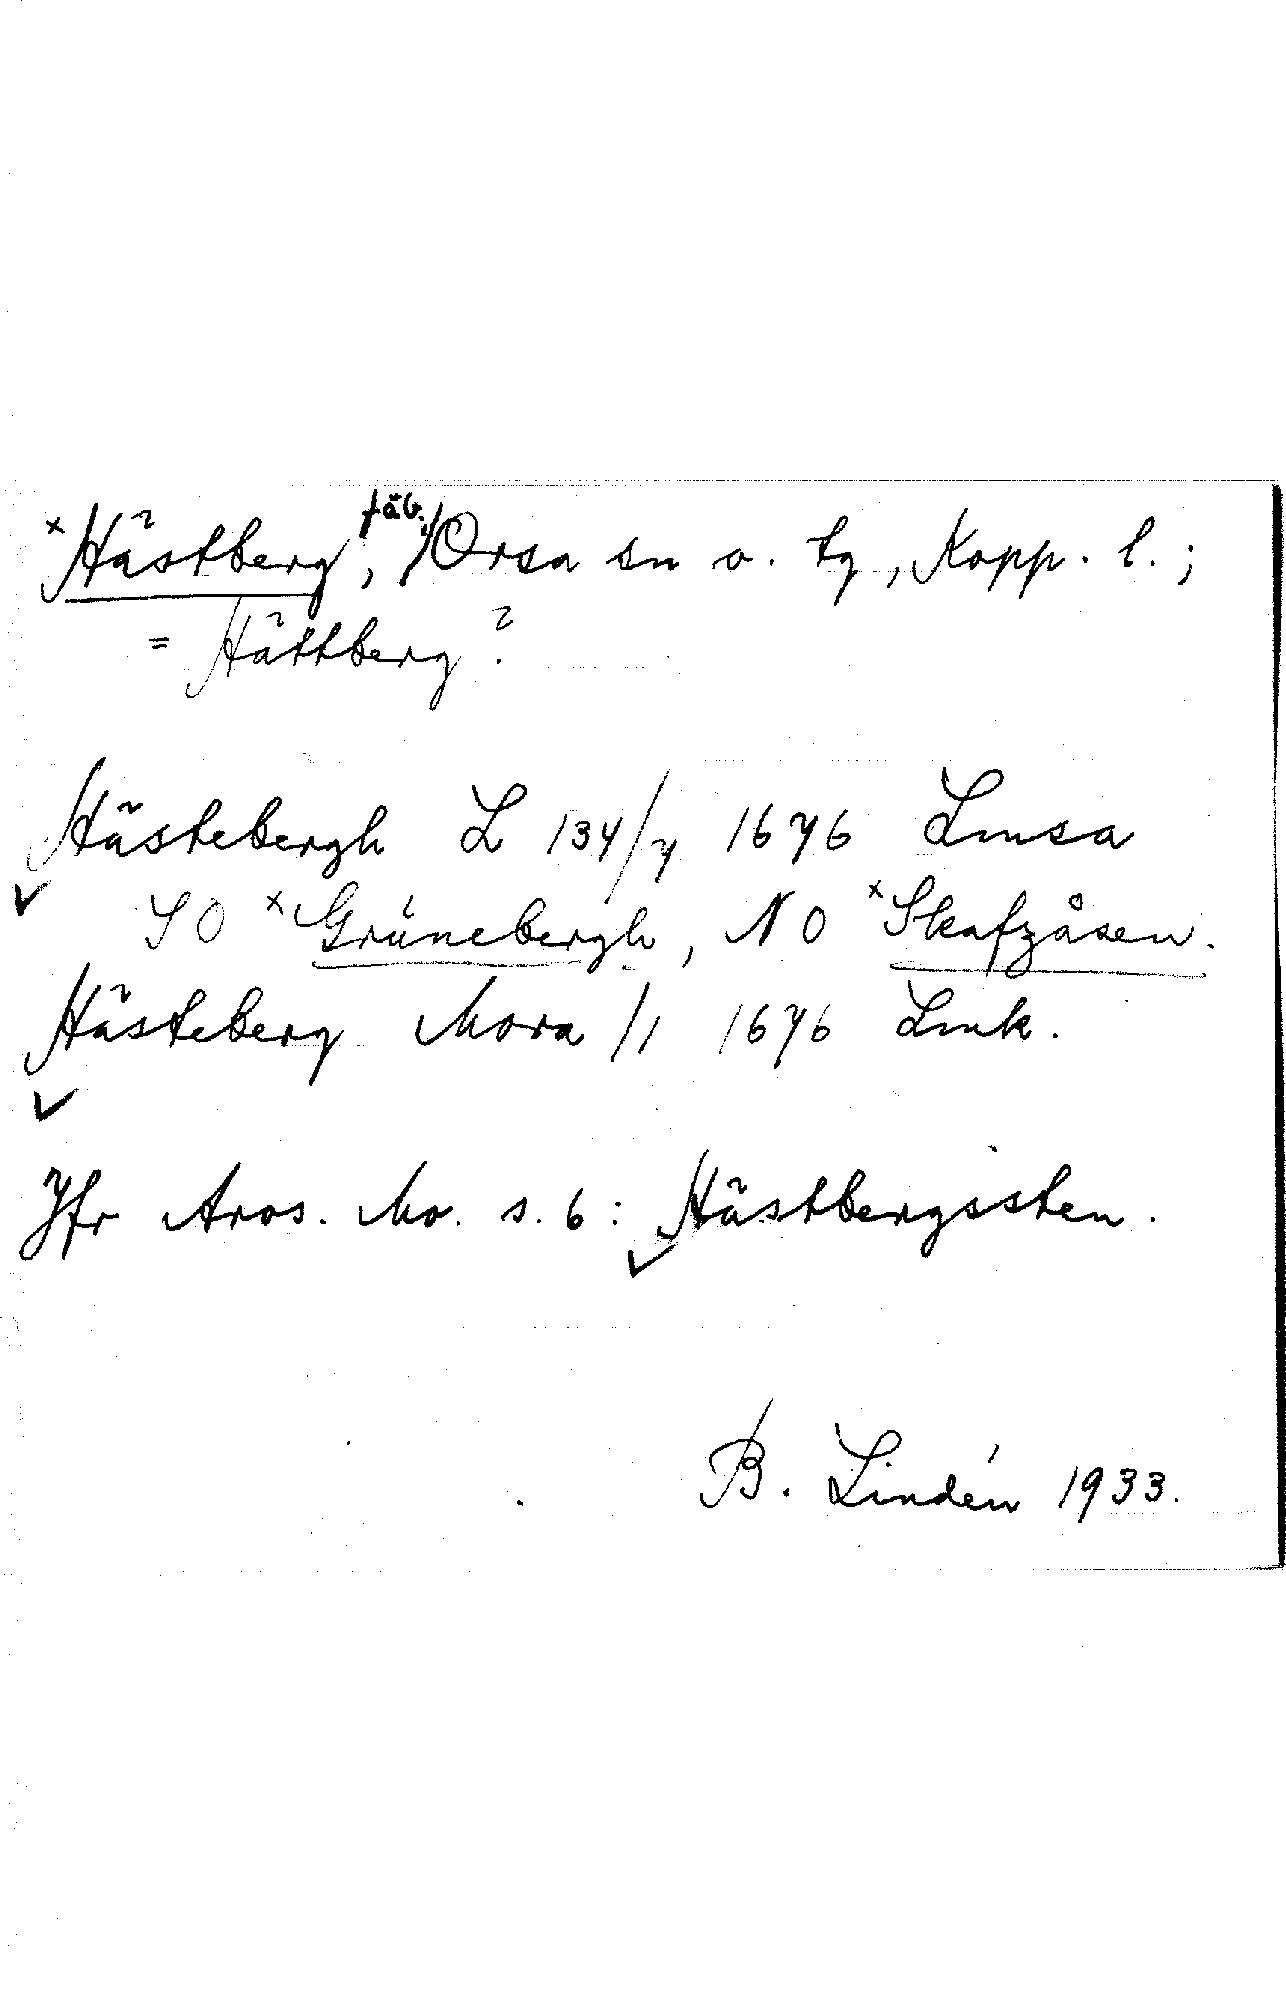 × Hästberg, fäb., Orsa sn o. tg, Kopp. l.;
= Hättberg?
Hästebergh L 134/7 1676 Lmsa
SO × Grünebergh, NO × Skafzåsen.
Hästeberg Mora /1 1676 Lmk.
Jfr Aros. Mo. s. 6: Hästbergssten.
B. Lindén 1933.